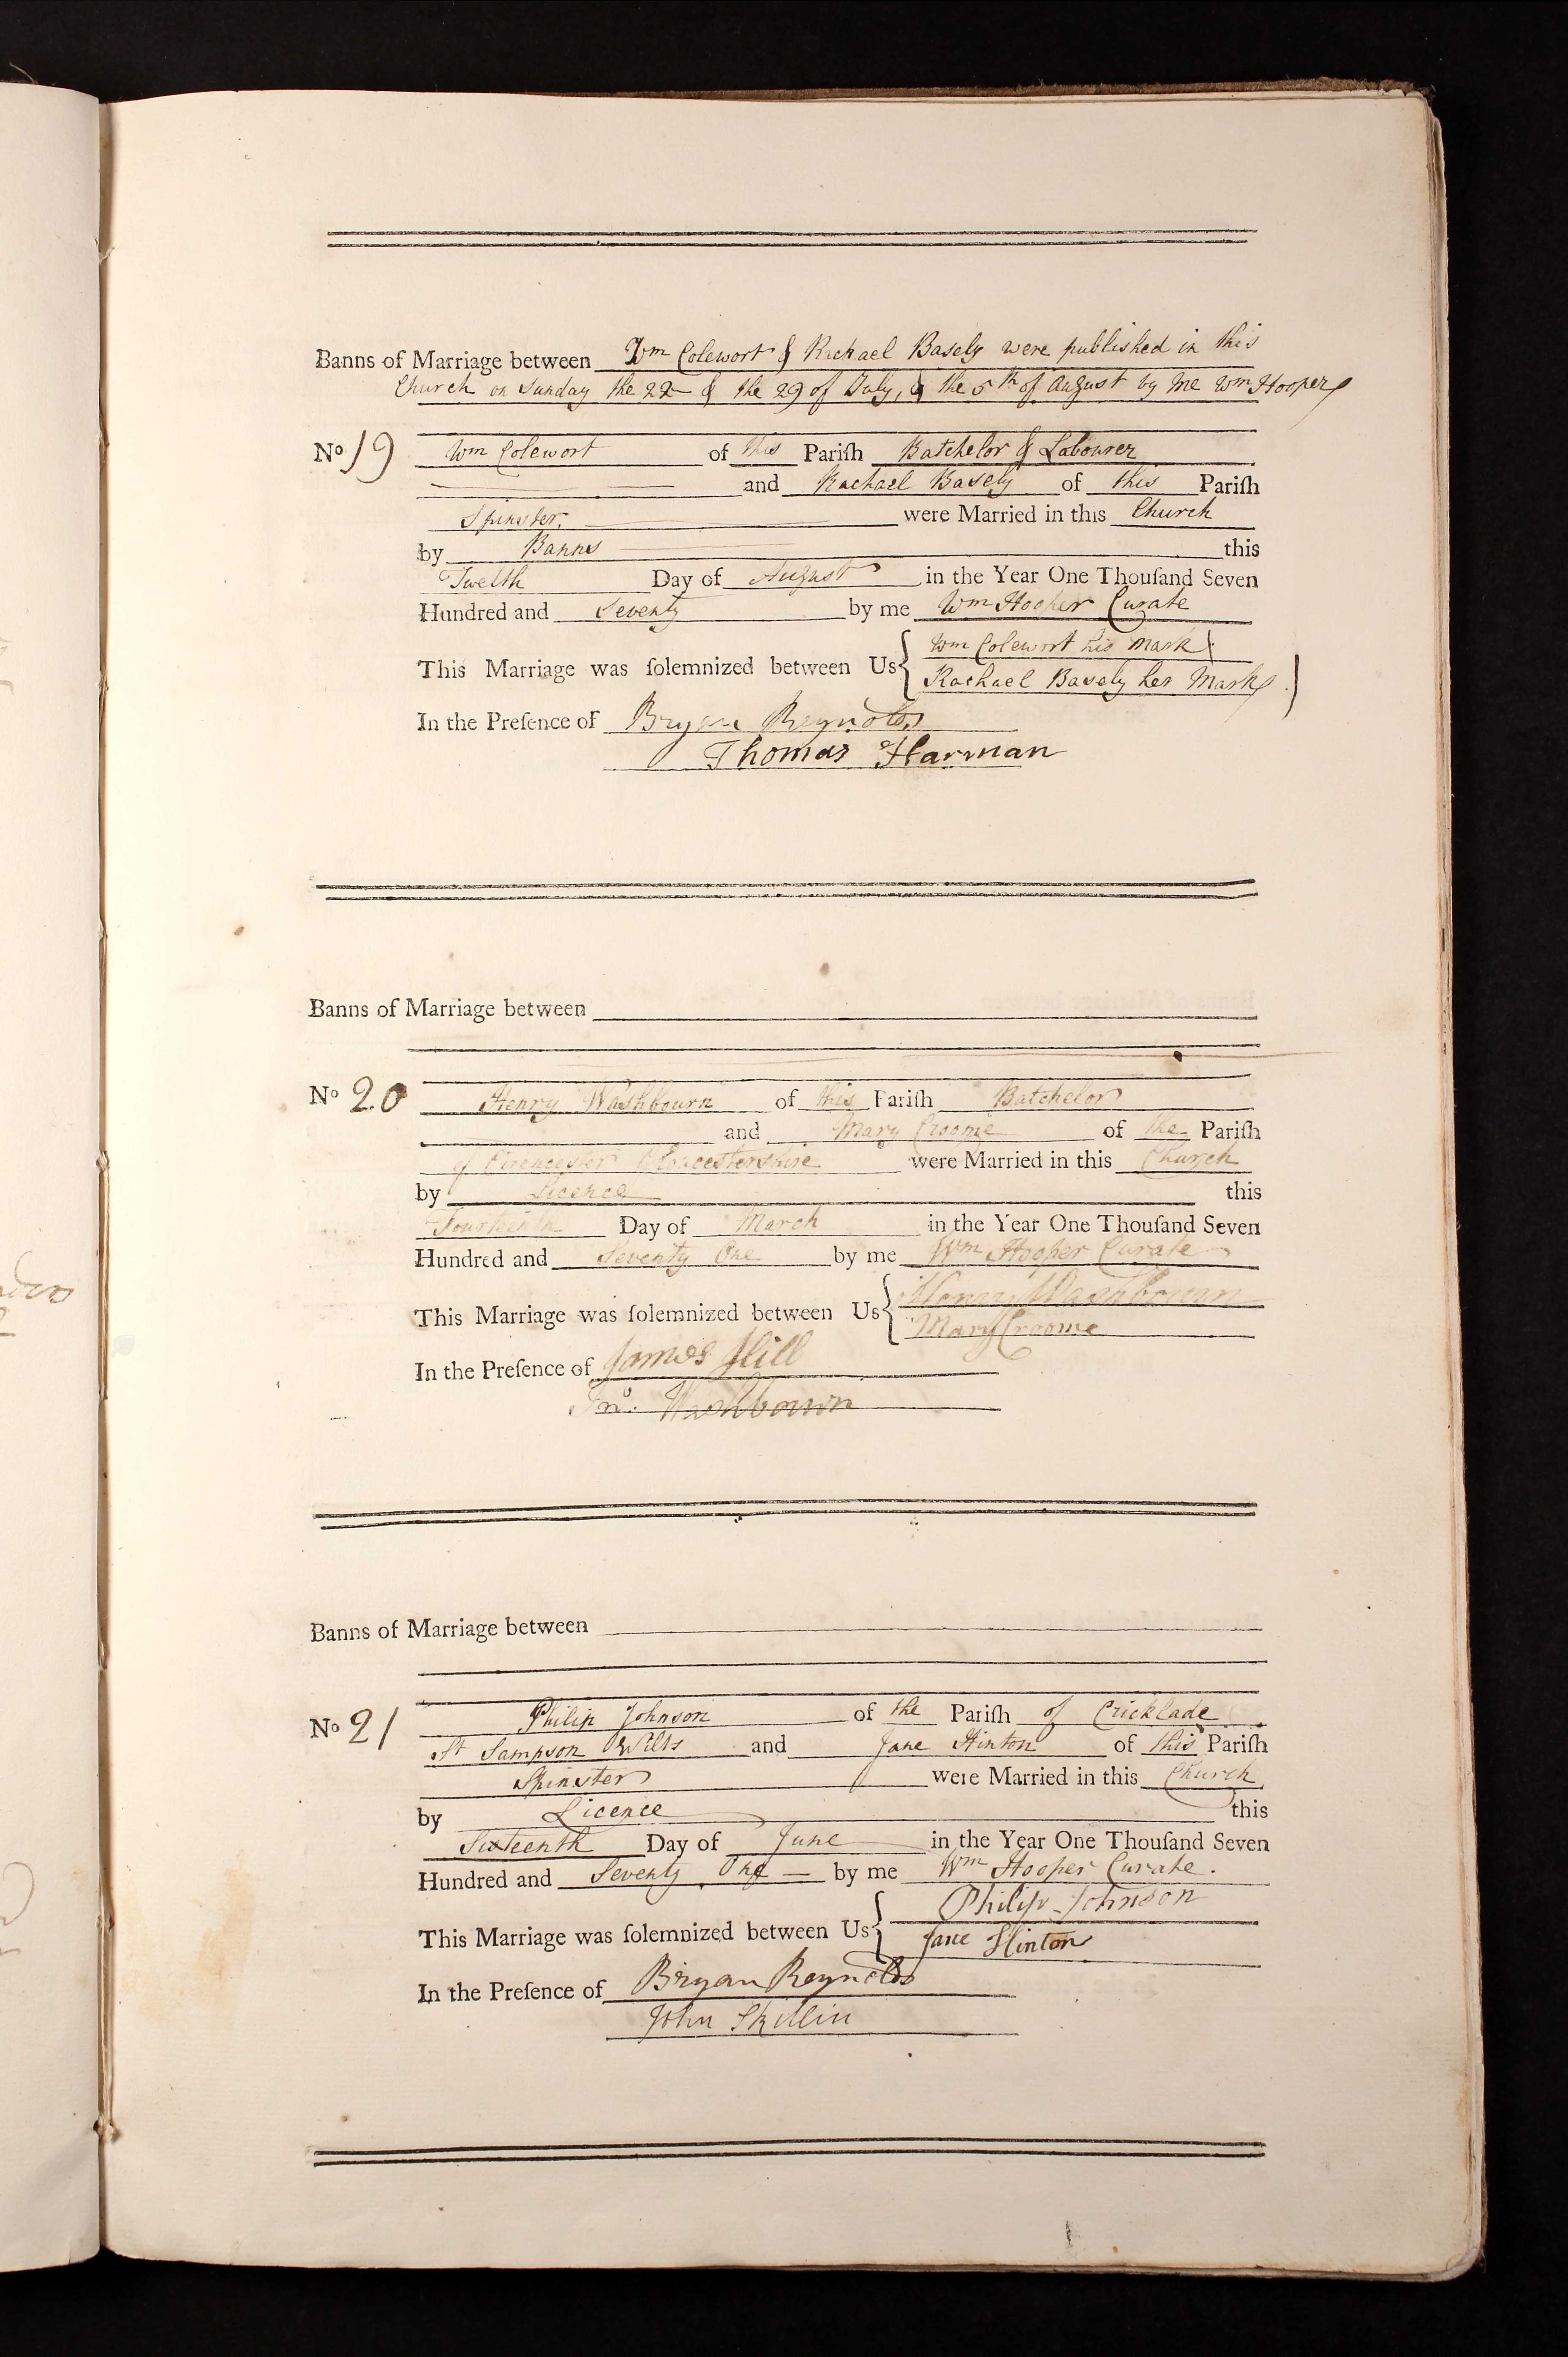 Banns of Marriage between Wm Colewort & Rachael Basely were published in this
Church on Sunday the 22 & the 29 of July, & the 5th of August by me Wm Hooper
No 19 Wm Colewort of this Pariſh Batchelor & Labourer
and Rachael Basely of this Pariſh
Spinster. were Married in this Church
by Banns this
Twelth Day of August in the Year One Thouſand Seven
Hundred and Seventy by me Wm Hooper Curate
This Marriage was ſolemnized between Us { Wm Colewort his mark
Rachael Basely her Mark
In the Preſence of Bryan Reynolds
Thomas Harman
Banns of Marriage between
No 20 Henry Washbourn of this Pariſh Batchelor
and Mary Croome of the Pariſh
of Cirencester Gloucestershire were Married in this Church
by Licence this
Fourteenth Day of March in the Year One Thouſand Seven
Hundred and Seventy One by me Wm Hooper Curate
This Marriage was ſolemnized between Us { Henry Washbourn
Mary Croome
In the Preſence of James Hill
Jno. Washbourn
Banns of Marriage between
No 21 Philip Johnson of the Pariſh of Cricklade
St Sampson Wilts and Jane Hinton of this Pariſh
Spinster were Married in this Church
by Licence this
Sixteenth Day of June in the Year One Thouſand Seven
Hundred and Seventy One by me Wm Hooper Curate.
This Marriage was ſolemnized between Us { Philip Johnson
Jane Hinton
In the Preſence of Bryan Reynolds
John Skillin